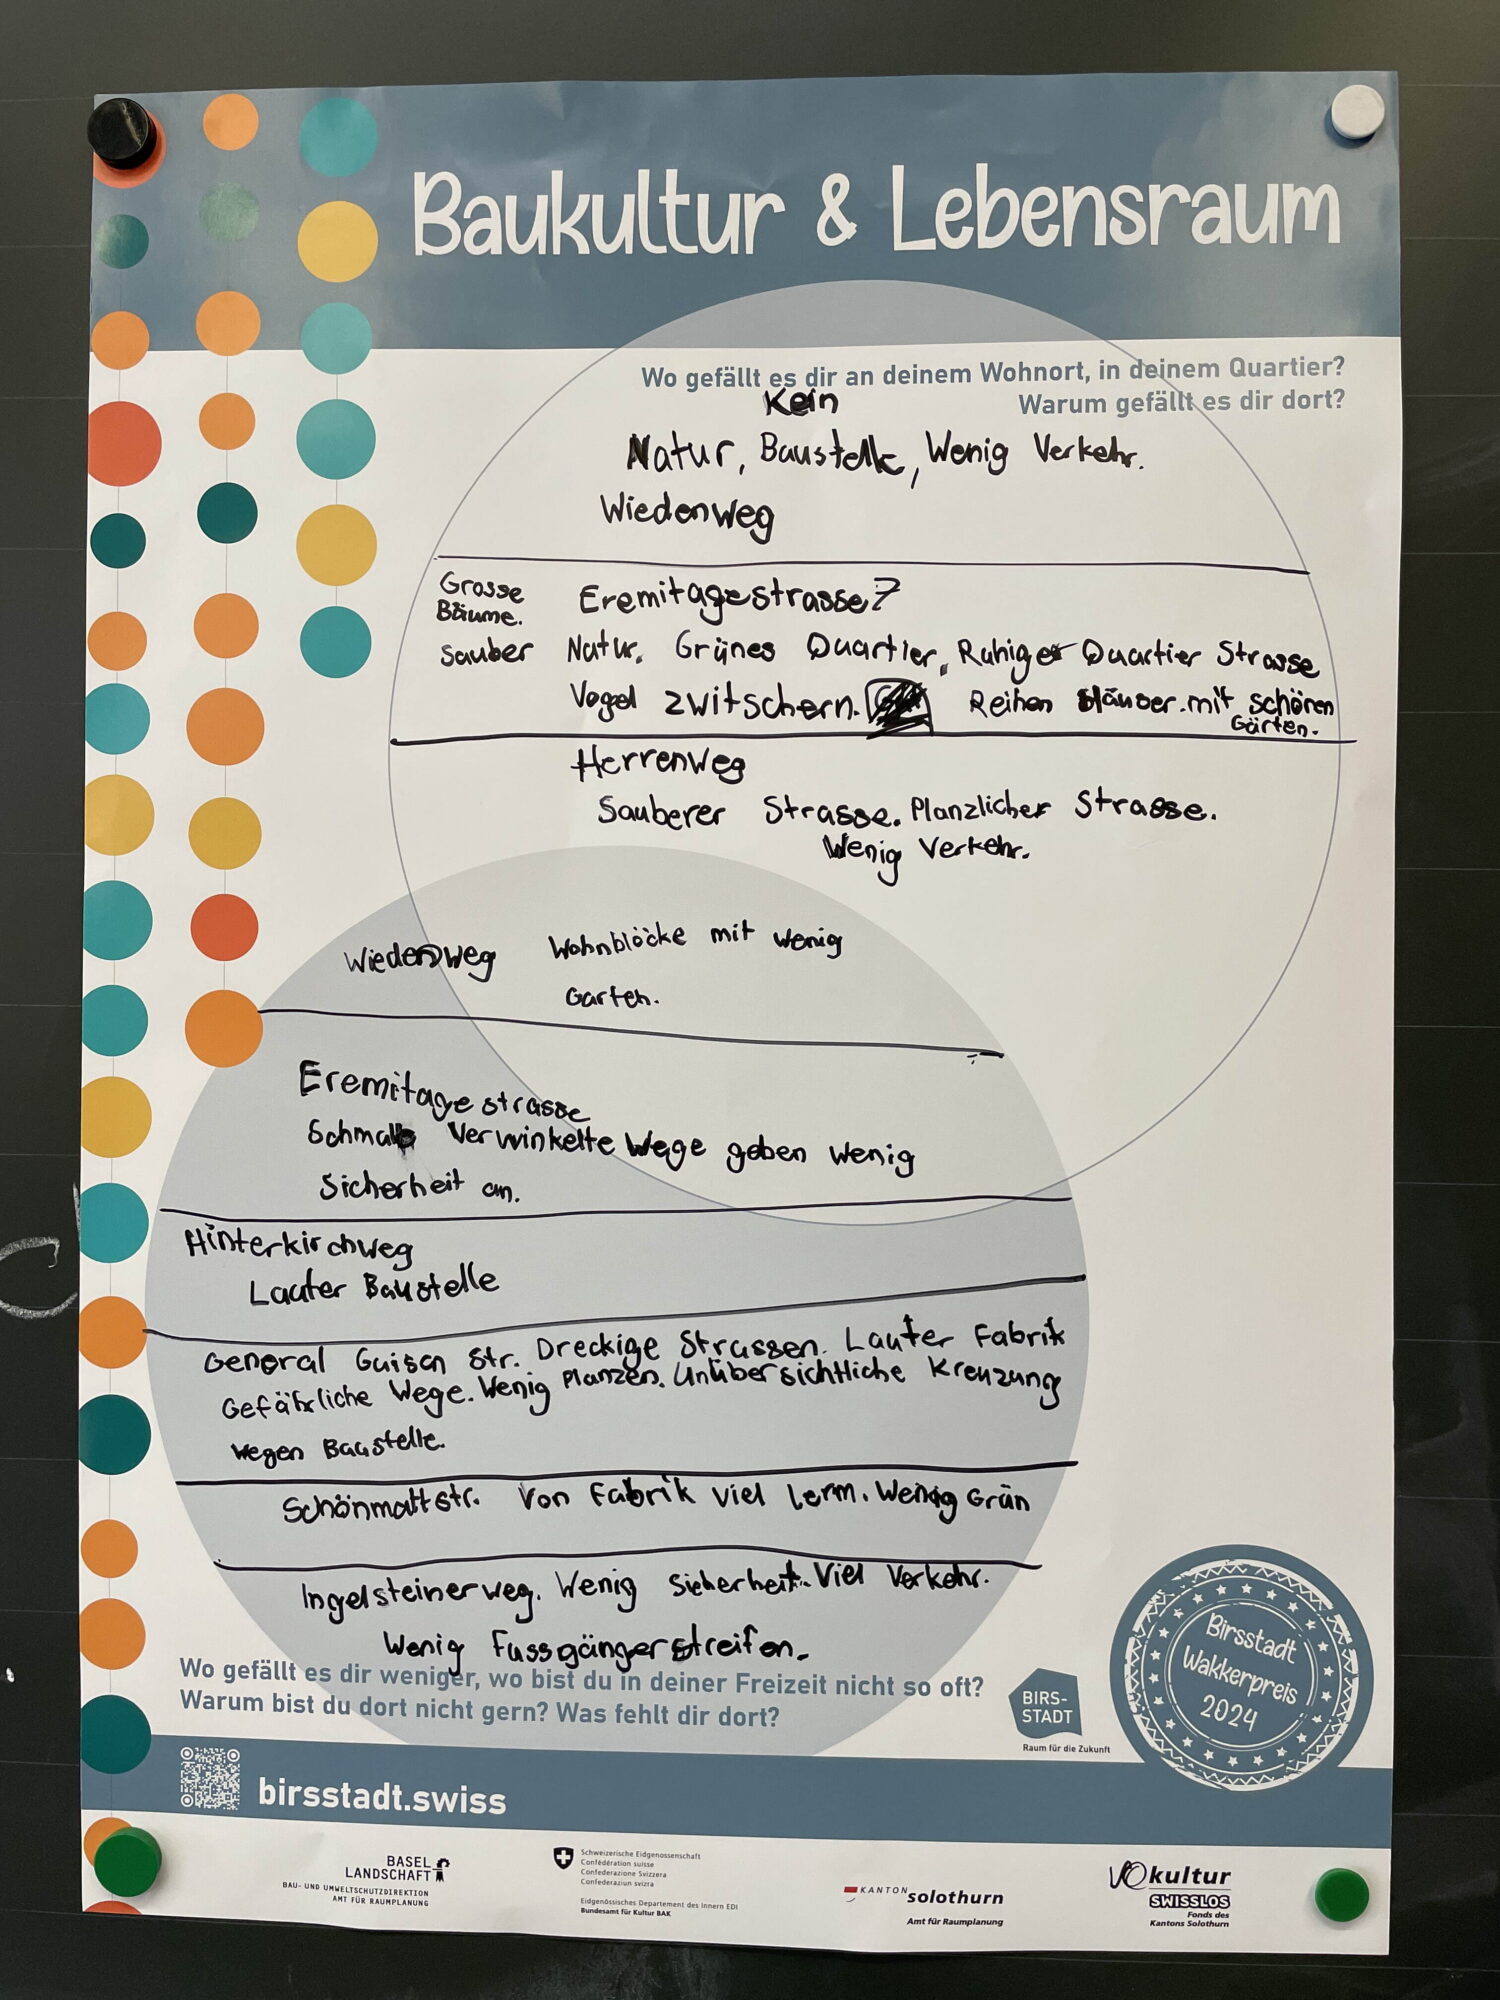 Baukultur & Lebensraum
Wo gefällt es dir an deinem Wohnort, in deinem Quartier?
Warum gefällt es dir dort?
Kein
Natur, Baustelle, Wenig Verkehr.
Wiedenweg
Grosse
Bäume.
Eremitagestrasse 7
sauber
Natur. Grünes Quartier, Ruhiger Quartier Strasse
Vogel zwitschern. Reihen Häuser. mit schönen
Gärten.
Herrenweg
Sauberer Strasse. Planzlicher Strasse.
Wenig Verkehr.
Wiedenweg Wohnblöcke mit wenig
Garten.
Eremitagestrasse
Schmale Verwinkelte Wege geben wenig
Sicherheit an.
Hinterkirchweg
Lauter Baustelle
General Guisan Str. Dreckige Strassen. Lauter Fabrik
Gefährliche Wege. Wenig Planzen. Unübersichtliche Kreuzung
wegen Baustelle.
Schönmattstr. Von Fabrik viel Lerm. Wenig Grün
Ingelsteinerweg. Wenig Sicherheit. Viel Verkehr.
Wenig Fussgängerstreifen.
Wo gefällt es dir weniger, wo bist du in deiner Freizeit nicht so oft?
Warum bist du dort nicht gern? Was fehlt dir dort?
BIRS-
STADT
Raum für die Zukunft
Birsstadt
Wakkerpreis
2024
birsstadt.swiss
BASEL
LANDSCHAFT
BAU- UND UMWELTSCHUTZDIREKTION
AMT FÜR RAUMPLANUNG
Schweizerische Eidgenossenschaft
Confédération suisse
Confederazione Svizzera
Confederaziun svizra
Eidgenössisches Departement des Innern EDI
Bundesamt für Kultur BAK
KANTON solothurn
Amt für Raumplanung
kultur
SWISSLOS
Fonds des
Kantons Solothurn